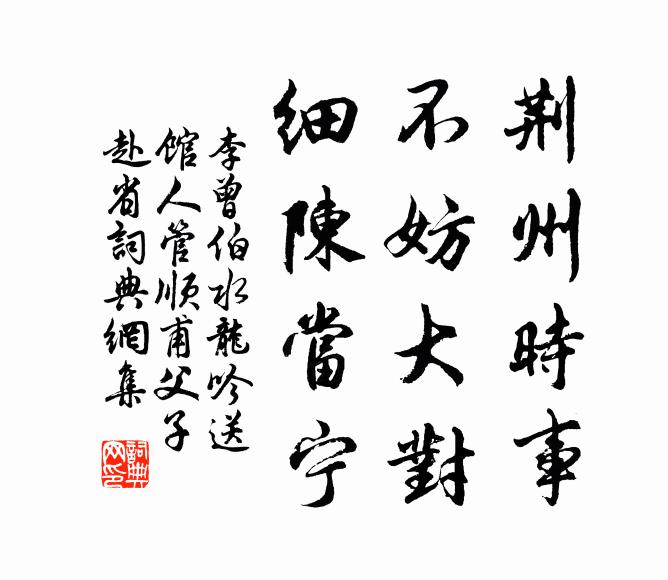 荆州時事
不妨大對
細陳當宁
李曾伯水龍吟送
館人管順甫父子
赴省詞典網集
詞典網印